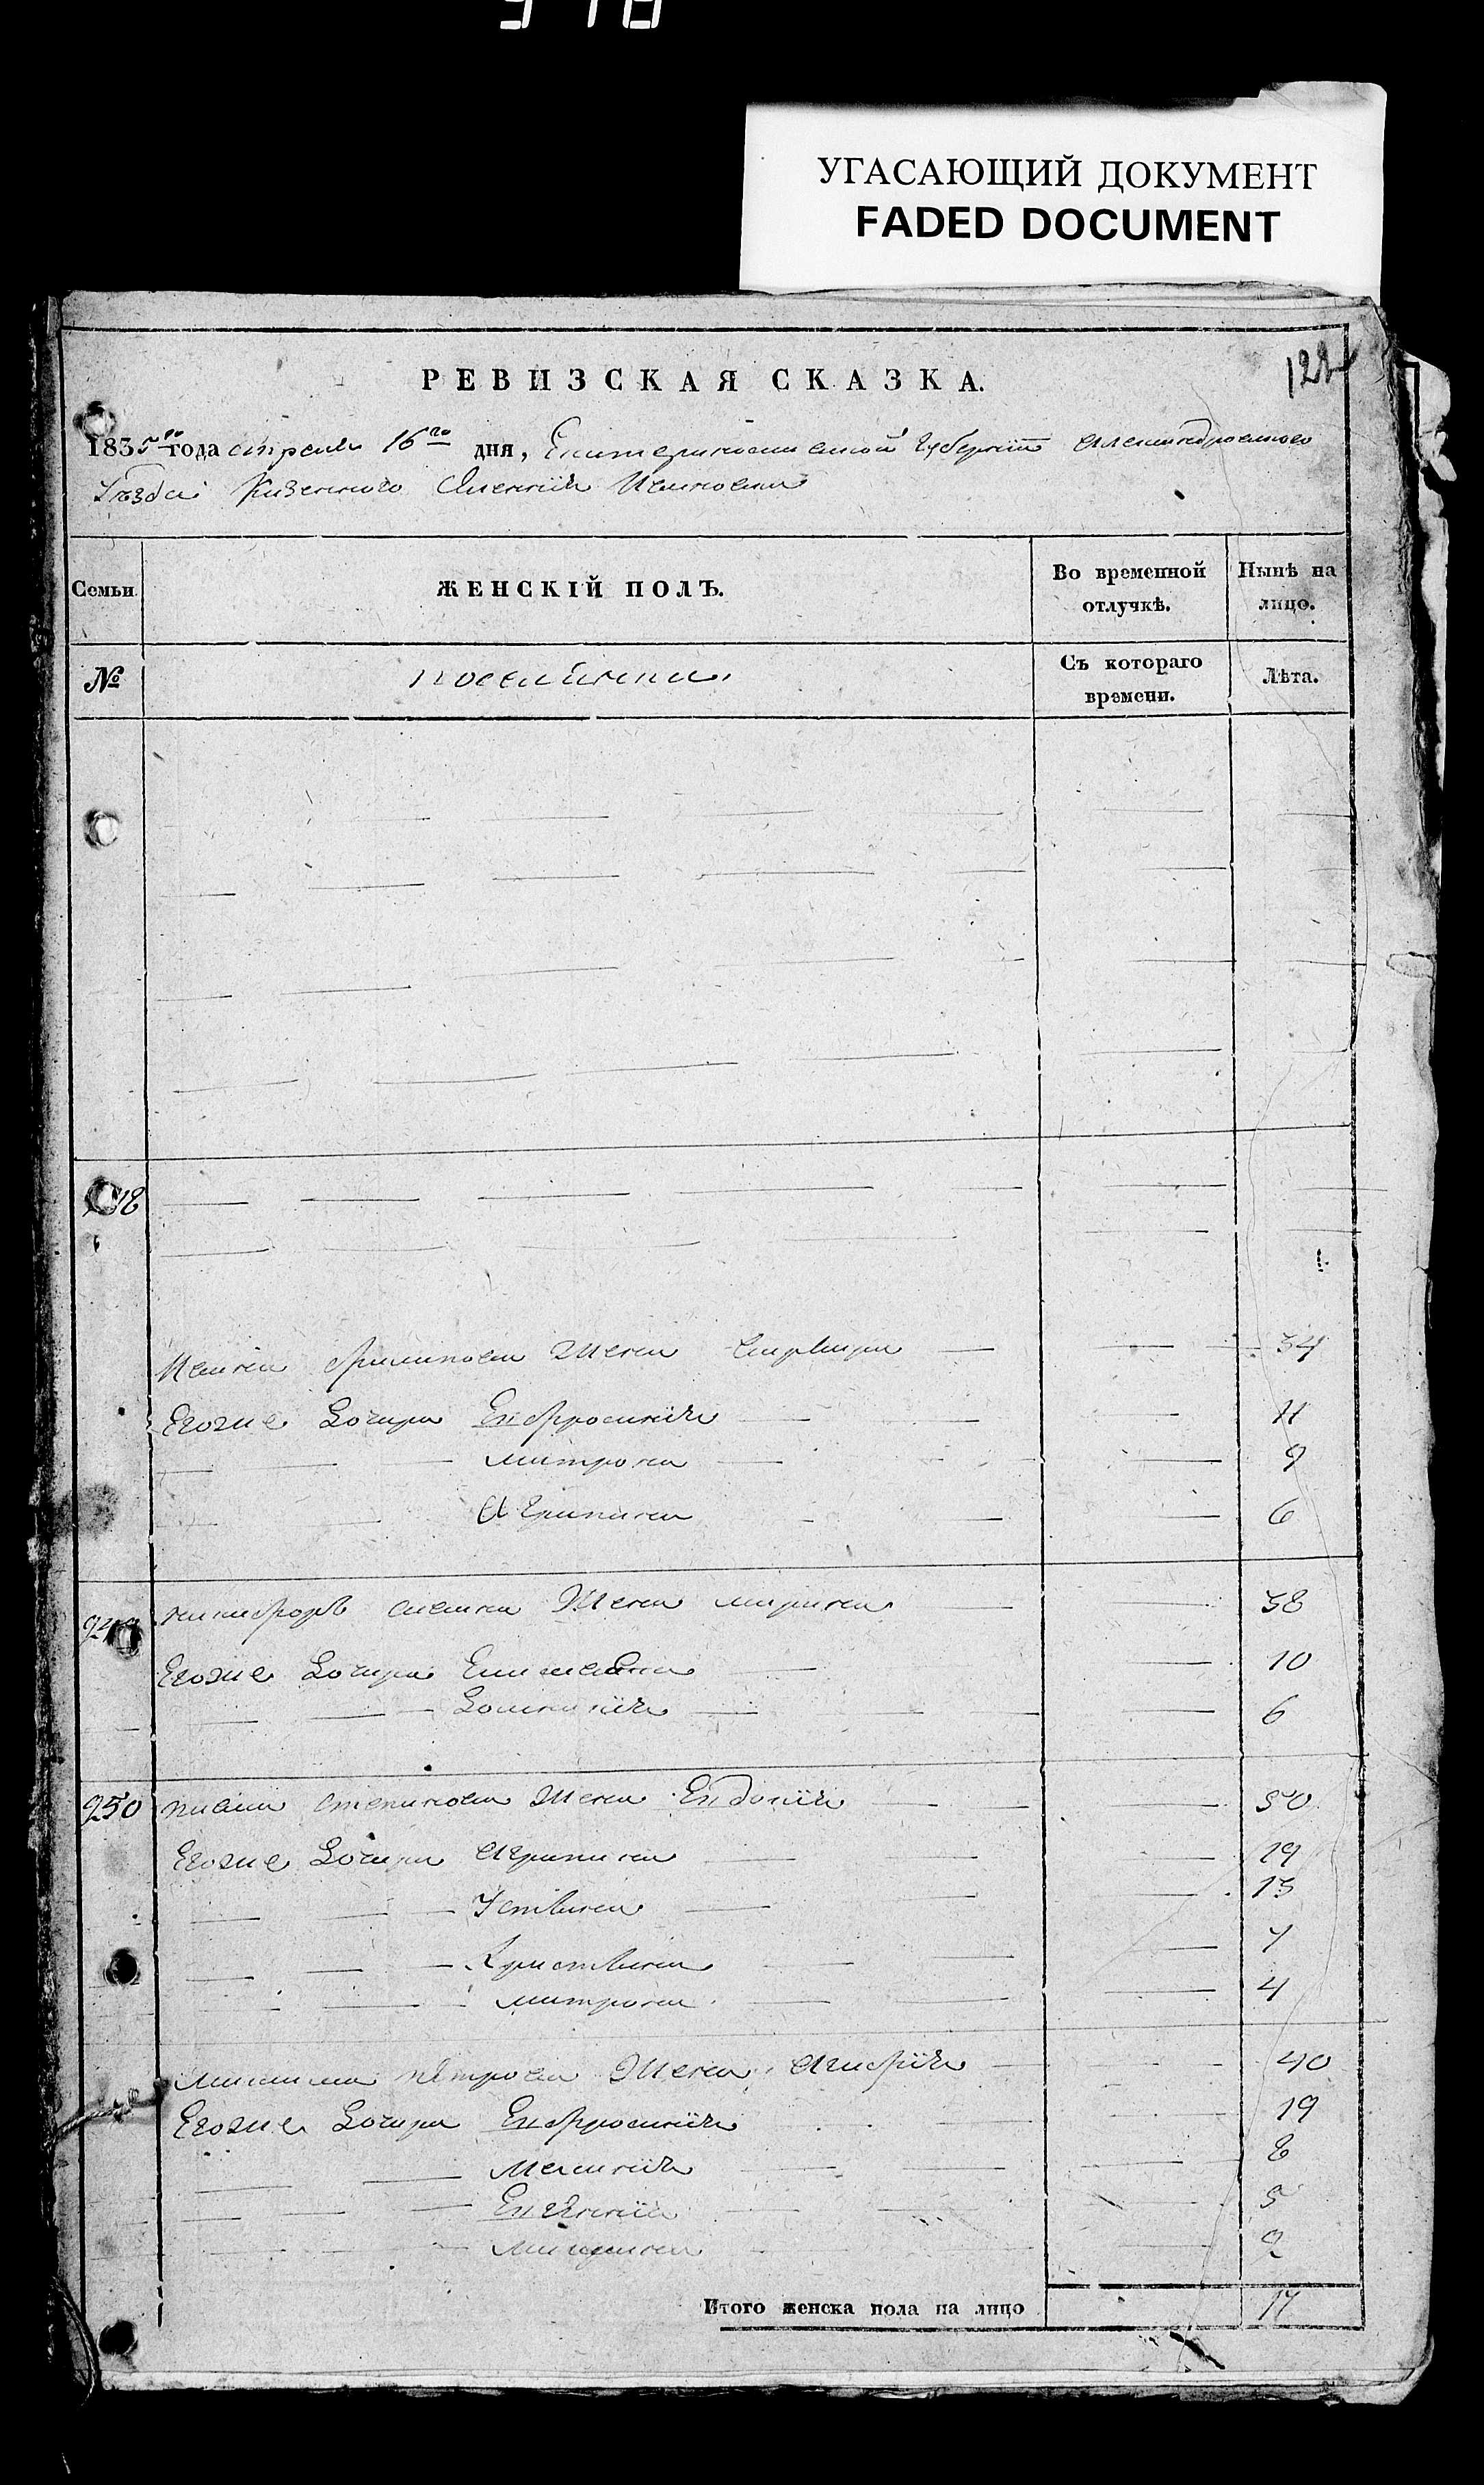 УГАСАЮЩИЙ ДОКУМЕНТ
FADED DOCUMENT
122
РЕВИЗСКАЯ СКАЗКА.
1835го года апреля 16го дня, Екатеринославской Губернии Александровского
Уѣзда Казенного Селения
Семьи ЖЕНСКІЙ ПОЛЪ. Во временной отлучкѣ. Нынѣ на лицо.
№ поселянки. Съ котораго времени. Лѣта.
Ивана Филипова жена Варвара 34
Егоже дочери Евфросинія 11
Матрона 9
Агрипина 6
249 Никифора жена Марина 38
Егоже дочери 10
Домникія 6
250 Павла Степанова жена Евдокія 50
Егоже дочери Агрипина 19
Устинья 13
Христина 7
Матрона 4
Максима Петрова жена Агафія 40
Егоже дочери Евфросинія 19
Меланія 8
Евгенія 5
Марина 2
Итого женска пола на лицо 17